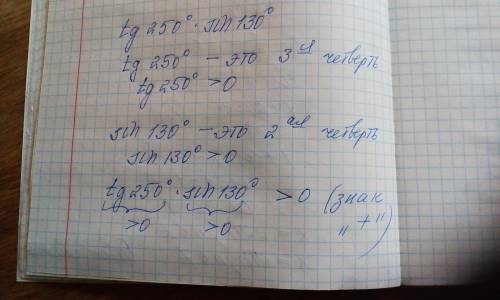 tg 250° · sin 130°
tg 250° – это 3 ья четверть
tg 250° > 0
sin 130° – это 2 ая четверть
sin 130° > 0
tg 250° · sin 130° > 0 (знак
>0 >0 „+“)